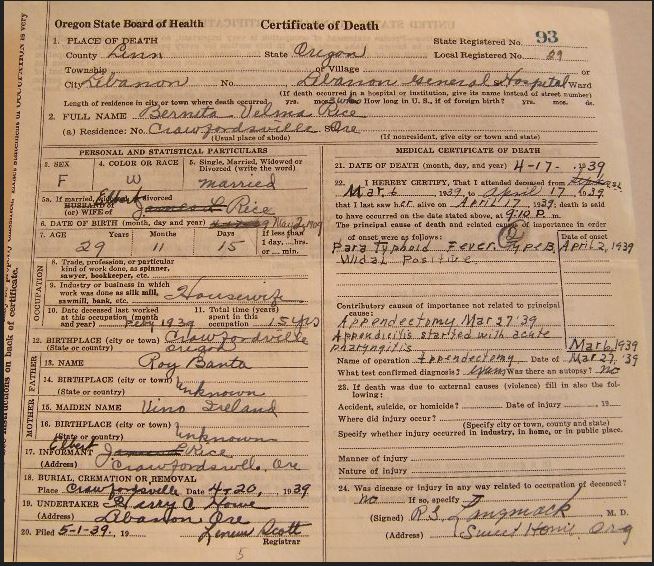 Oregon State Board of Health
Certificate of Death
State Registered No. 93
Local Registered No. 29
1. PLACE OF DEATH
County Linn State Oregon
Township or Village or
City Lebanon No. Lebanon General Hospital Ward
(If death occurred in a hospital or institution, give its name instead of street number)
Length of residence in city or town where death occurred yrs. mos. How long in U. S., if of foreign birth? yrs. mos. ds.
2. FULL NAME Bernita Velma Rice
(a) Residence: No. Crawfordsville Ore
(Usual place of abode) (If nonresident, give city or town and state)
PERSONAL AND STATISTICAL PARTICULARS
3. SEX 4. COLOR OR RACE 5. Single, Married, Widowed or Divorced (write the word)
F W married
5a. If married, divorced
HUSBAND of
(or) WIFE of Elbert Rice
6. DATE OF BIRTH (month, day and year)
7. AGE Years Months Days If less than
1 day....hrs.
or .... min.
29 11 15
OCCUPATION
8. Trade, profession, or particular
kind of work done, as spinner,
sawyer, bookkeeper, etc.
9. Industry or business in which
work was done as silk mill,
sawmill, bank, etc. Housewife
10. Date deceased last worked
at this occupation (month
and year) Feby 1939
11. Total time (years)
spent in this
occupation 15 yrs
12. BIRTHPLACE (city or town) Crawfordsville
(State or country) Oregon
FATHER
13. NAME Roy Banta
14. BIRTHPLACE (city or town) Unknown
(State or country)
MOTHER
15. MAIDEN NAME Vino Ireland
16. BIRTHPLACE (city or town) Unknown
(State or country)
17. INFORMANT Elbert Rice
(Address) Crawfordsville, Ore
18. BURIAL, CREMATION OR REMOVAL
Place Crawfordsville Date 4-20, 1939
19. UNDERTAKER Harry C Howe
(Address) Lebanon Ore
20. Filed 5-1-39, 19 Scott
Registrar
5
MEDICAL CERTIFICATE OF DEATH
21. DATE OF DEATH (month, day, and year) 4-17- 1939
22. I HEREBY CERTIFY, That I attended deceased from
Mar 6 1939, to April 17 1939
that I last saw her alive on April 17 1939, death is said
to have occurred on the date stated above, at 9:10 P.m.
The principal cause of death and related causes of importance in order
of onset were as follows:
Date of onset
Para Typhoid Fever Type B April 2, 1939
Widal Positive
Contributory causes of importance not related to principal
cause:
Appendectomy Mar 27 '39
Appendicitis started with acute
pharyngitis Mar 6, 1939
Name of operation Appendectomy Date of Mar 27, '39
What test confirmed diagnosis? exam Was there an autopsy? no
23. If death was due to external causes (violence) fill in also the following:
Accident, suicide, or homicide? Date of injury , 19
Where did injury occur?
(Specify city or town, county and state)
Specify whether injury occurred in industry, in home, or in public place.
Manner of injury
Nature of injury
24. Was disease or injury in any way related to occupation of deceased?
no If so, specify
(Signed) R.S. Langmack M. D.
(Address) Sweet Home Org